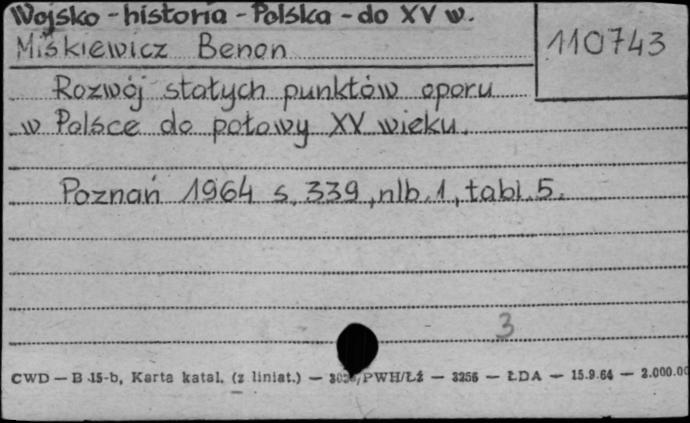 Wojsko - historia - Polska - do XV w.
Miśkiewicz Benon
110743
Rozwój stałych punktów oporu
w Polsce do połowy XV wieku.
Poznań 1964 s. 339, nlb. 1, tabl. 5.
3
CWD — B 15-b, Karta katal. (z liniat.) — PWH/Łź — 3256 — ŁDA — 15.9.64 — 2.000.00